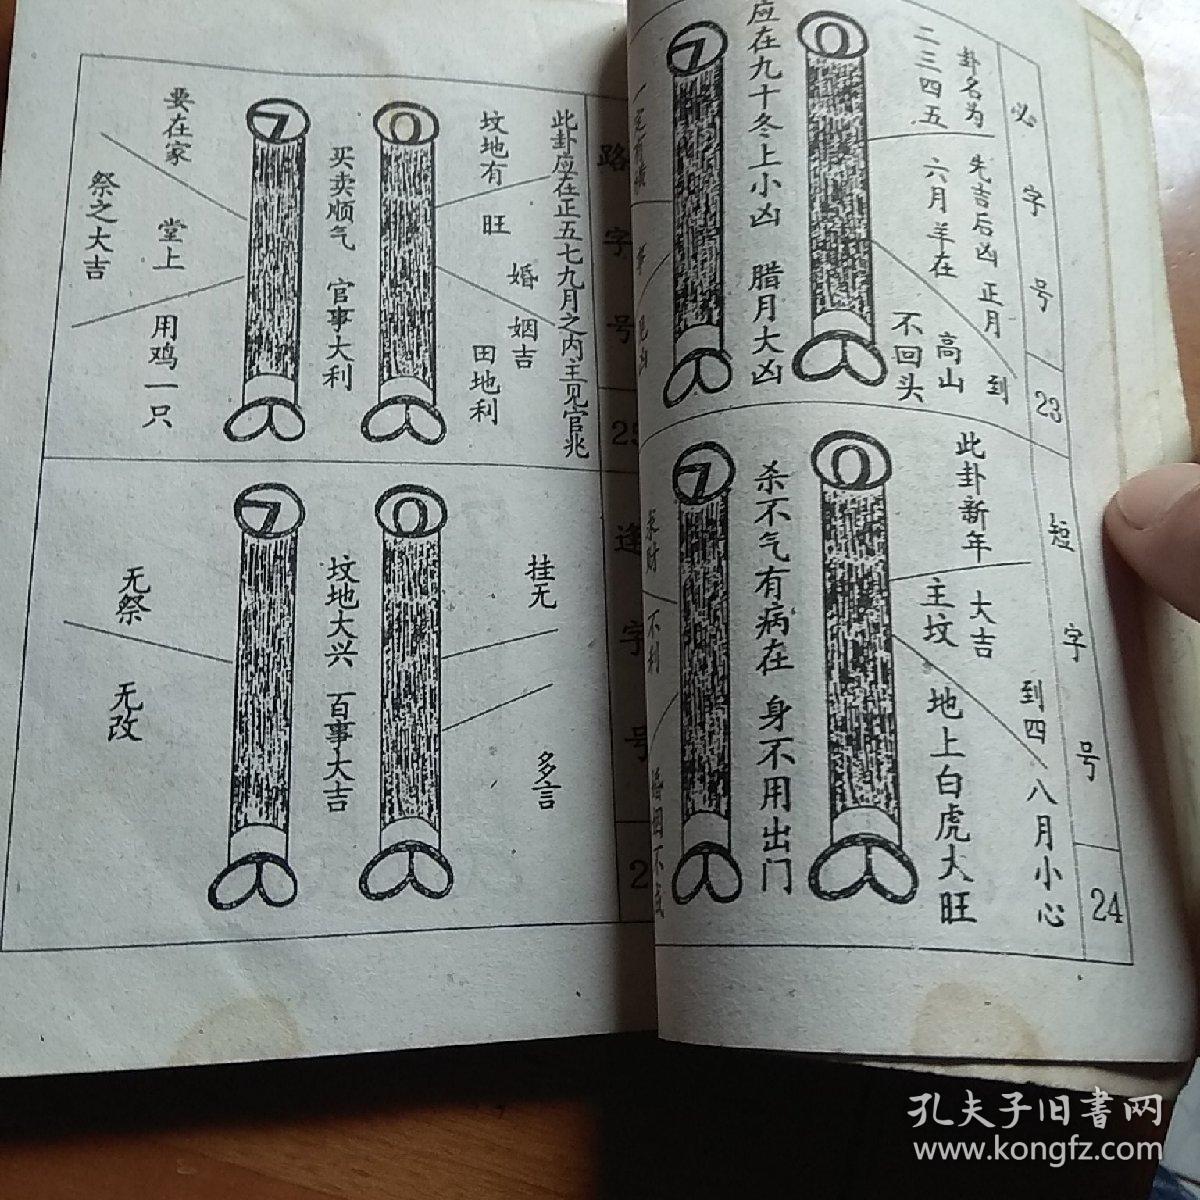 必字号
23
卦名为
先吉后凶
正月
到
二三四五
六月羊在
高山
不回头
应在九十冬上小凶
腊月大凶
短字号
24
此卦新年
大吉
到四
八月小心
主坟
地上白虎大旺
杀不气有病在
身不用出门
求财
不利
路字号
此卦应在正五七九月之内主见官兆
坟地有
旺
婚
姻吉
田地利
买卖顺气
官事大利
要在家
堂上
用鸡一只
祭之大吉
逢字号
挂无
多言
坟地大兴
百事大吉
无祭
无改
孔夫子旧书网
www.kongfz.com